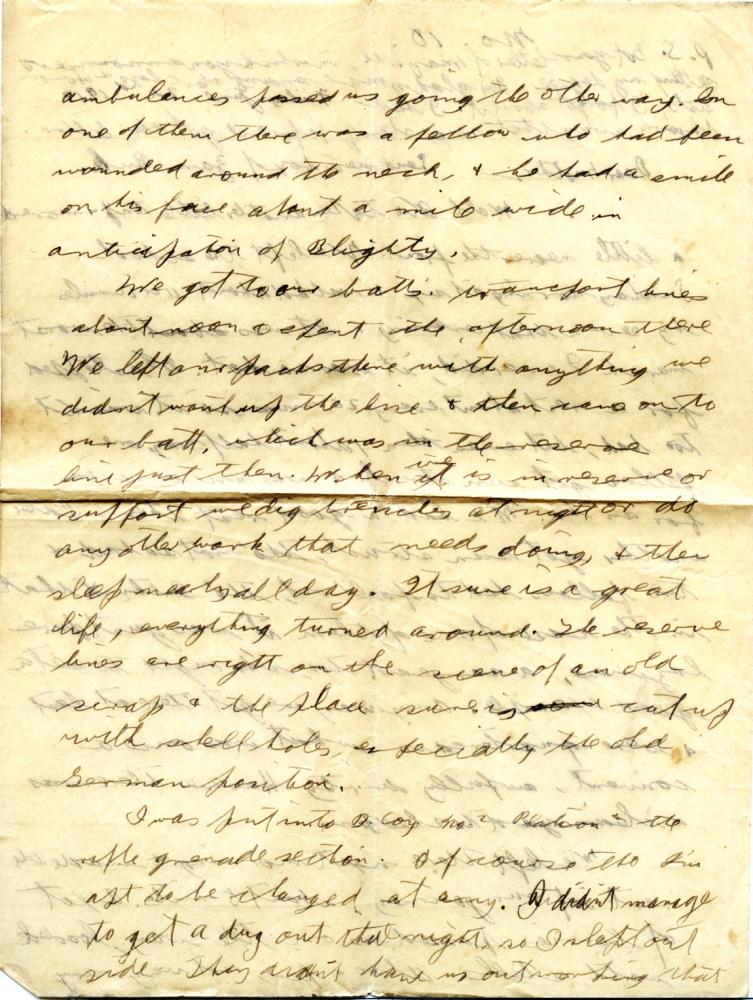 No 10
ambulances passed us going the other way. On
one of them there was a fellow who had been
wounded around the neck, & he had a smile
on his face about a mile wide in
anticipation of Blighty.
We got to our batt's. transport lines
about noon & spent the afternoon there
We left our packs there with anything we
didn't want up the line & then came on to
our batt, which was in the reserve
line just then. When we is in reserve or
support we dig trenches at night or do
any other work that needs doing, & then
sleep nearly all day. It sure is a great
life, everything turned around. The reserve
lines are right on the scene of, an old
scrap & the place sure is cut up
with shell holes, especially the old
German position.
I was put into D Coy No 2 Platoon the
rifle grenade section. Of course tho I'm
apt to be changed at any. I didn't manage
to get a dug out that night, so I slept out
side. They didn't have us out working that